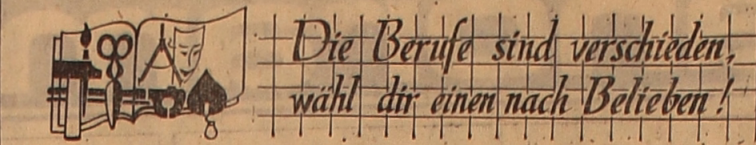 Die Berufe sind verschieden,
wähl dir einen nach Belieben!